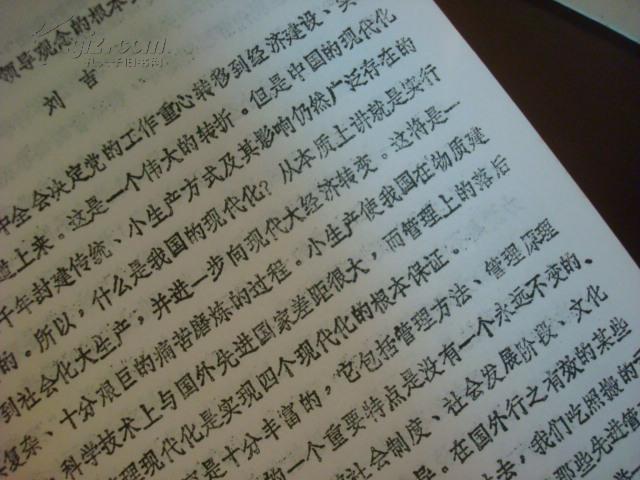 领导观念的根本
刘 吉
中全会决定党的工作重心转移到经济建设、实
道上来。这是一个伟大的转折。但是中国的现代化
千年封建传统、小生产方式及其影响仍然广泛存在的
的。所以，什么是我国的现代化？从本质上讲就是实行
到社会化大生产，并进一步向现代大经济转变。这将是一
复杂、十分艰巨的痛苦磨炼的过程。小生产使我国在物质建
科学技术上与国外先进国家差距很大，而管理上的落后
管理现代化是实现四个现代化的根本保证。
是十分丰富的，它包括管理方法、管理原理
的一个重要特点是没有一个永远不变的、
社会制度、社会发展阶段、文化
异。在国外行之有效的某些
去，我们吃照搬的
那些先进管